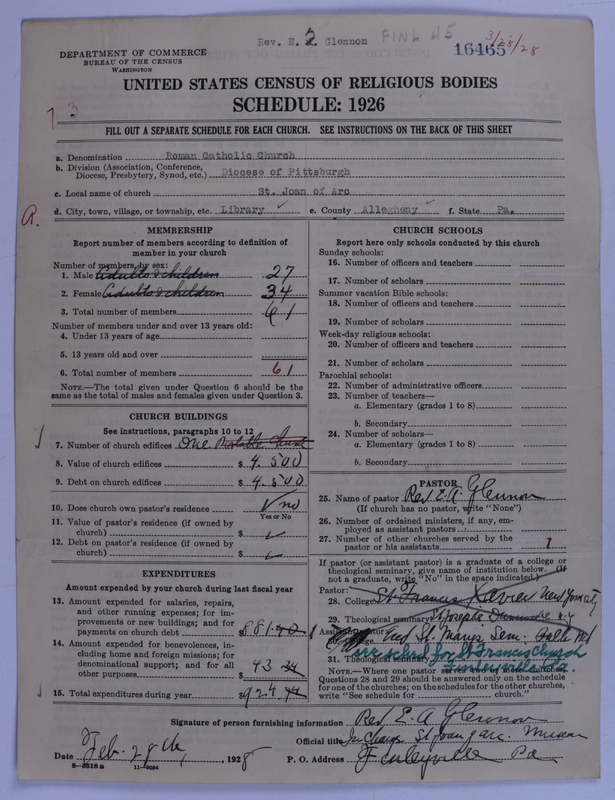 Rev. E. A. Glennon
FINL 45
3/28/28
16465
DEPARTMENT OF COMMERCE
BUREAU OF THE CENSUS
WASHINGTON
UNITED STATES CENSUS OF RELIGIOUS BODIES
SCHEDULE: 1926
73
FILL OUT A SEPARATE SCHEDULE FOR EACH CHURCH. SEE INSTRUCTIONS ON THE BACK OF THIS SHEET
a. Denomination Roman Catholic Church
b. Division (Association, Conference,
Diocese, Presbytery, Synod, etc.) Diocese of Pittsburgh
c. Local name of church St. Joan of Arc
R.
d. City, town, village, or township, etc. Library ✓ e. County Allegheny ✓ f. State Pa.
MEMBERSHIP
Report number of members according to definition of
member in your church
Number of members, by sex:
1. Male Adults & children 27
2. Female Adults & children 34
3. Total number of members 61
Number of members under and over 13 years old:
4. Under 13 years of age
5. 13 years old and over
6. Total number of members 61
NOTE.—The total given under Question 6 should be the
same as the total of males and females given under Question 3.
CHURCH BUILDINGS
See instructions, paragraphs 10 to 12
7. Number of church edifices One Portable
8. Value of church edifices $ 4.500
9. Debt on church edifices $ 4.500
10. Does church own pastor's residence ✓ no
Yes or No
11. Value of pastor's residence (if owned by
church) $ ✓
12. Debt on pastor's residence (if owned by
church) $ ✓
EXPENDITURES
Amount expended by your church during last fiscal year
13. Amount expended for salaries, repairs,
and other running expenses; for im-
provements or new buildings; and for
payments on church debt $ 881.40
14. Amount expended for benevolences, in-
cluding home and foreign missions; for
denominational support; and for all
other purposes 43 34
15. Total expenditures during year $ 924.74
CHURCH SCHOOLS
Report here only schools conducted by this church
Sunday schools:
16. Number of officers and teachers
17. Number of scholars
Summer vacation Bible schools:
18. Number of officers and teachers
19. Number of scholars
Week-day religious schools:
20. Number of officers and teachers
21. Number of scholars
Parochial schools:
22. Number of administrative officers
23. Number of teachers—
a. Elementary (grades 1 to 8)
b. Secondary
24. Number of scholars—
a. Elementary (grades 1 to 8)
b. Secondary
PASTOR
25. Name of pastor Rev E. A. Glennon
(If church has no pastor, write "None")
26. Number of ordained ministers, if any, em-
ployed as assistant pastors
27. Number of other churches served by the
pastor or his assistants 1
If pastor (or assistant pastor) is a graduate of a college or
theological seminary, give name of institution below. (If
not a graduate, write "No" in the space indicated.)
Pastor:
28. College St Francis Xavier New York City
29. Theological seminary St Josephs Dunwoodie N.Y
and St. Marys Sem. Balto Md
see sched for St Francis Church
31. Theological seminary Finleyville Pa.
NOTE.—Where one pastor
Questions 28 and 29 should be answered only on the schedule
for one of the churches; on the schedules for the other churches,
write "See schedule for church."
Signature of person furnishing information Rev. E. A Glennon
Official title In Charge St Joan of Arc. Mission
Date Feb. 28 th, 1928 P. O. Address Finleyville Pa
8-3318 a 11-9084